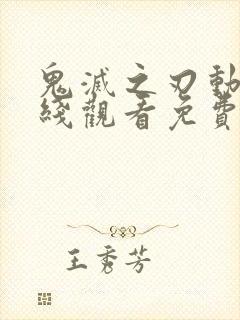 鬼滅之刃動
綫觀看免費
王秀芳